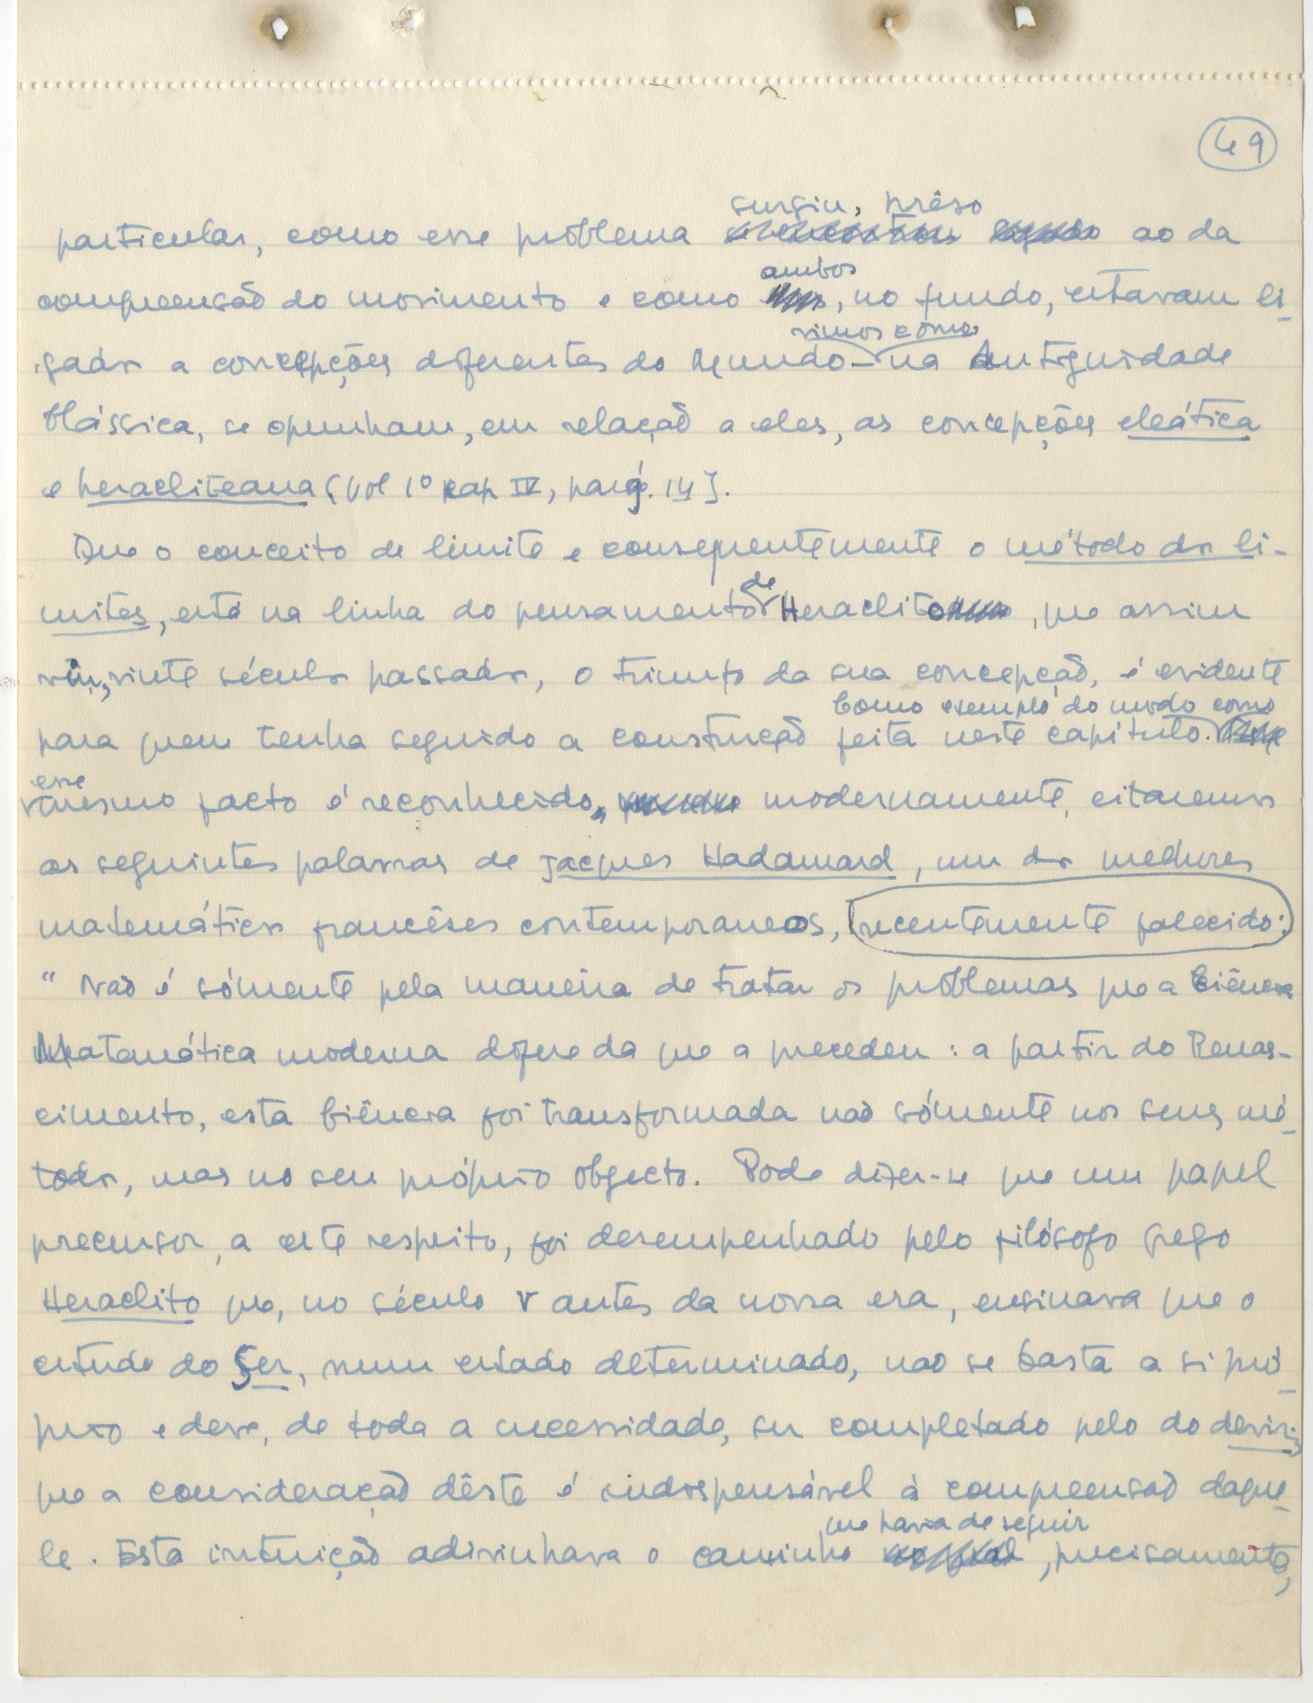 49
surgiu, prêso
particular, como esse problema ao da
ambos
compreensão do movimento e como, no fundo, estavam li-
vimos como
gados a concepções diferentes do Mundo – na Antiguidade
Clássica, se opunham, em relação a eles, as concepções eleática
e heracliteana [vol 1º cap IV, parág. 14].
Que o conceito de limite e consequentemente o método dos li-
de
mites, está na linha do pensamento Heraclito, que assim
viu, vinte séculos passados, o triunfo da sua concepção, é evidente
Como exemplo do modo como
para quem tenha seguido a construção feita neste capítulo.
esse
mesmo facto é reconhecido, modernamente, citaremos
as seguintes palavras de Jacques Hadamard, um dos melhores
matemáticos francêses contemporaneos, recentemente falecido:
" Não é sómente pela maneira de tratar os problemas que a Ciência
Matemática moderna difere da que a precedeu : a partir do Renas-
cimento, esta Ciência foi transformada não sómente nos seus mé-
todos, mas no seu próprio objecto. Pode dizer-se que um papel
precursor, a este respeito, foi desempenhado pelo filósofo grego
Heraclito que, no século V antes da nossa era, ensinava que o
estudo do Ser, num estado determinado, não se basta a si pró-
prio e deve, de toda a necessidade, ser completado pelo do devir;
que a consideração dêste é indispensável à compreensão daque-
que havia de seguir
le. Esta intuição adivinhava o caminho, precisamente,